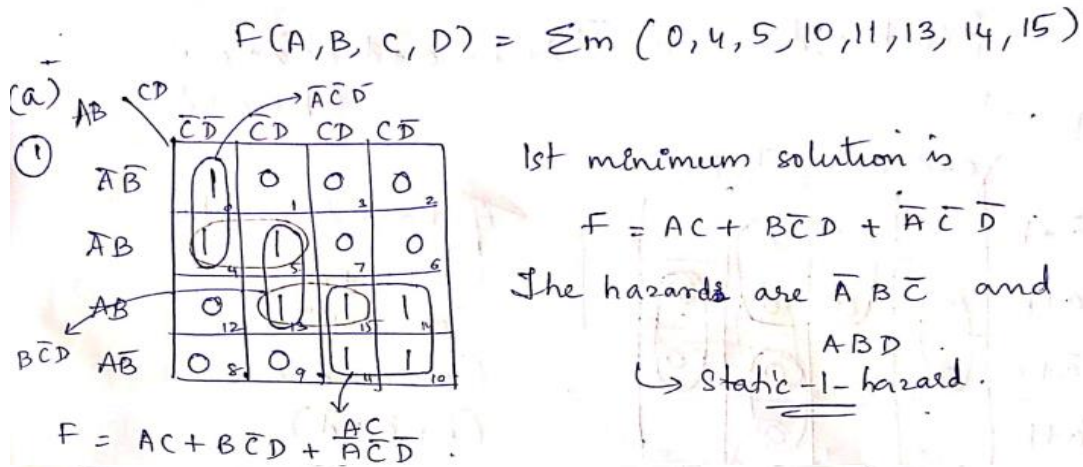 F(A, B, C, D) = Σm (0, 4, 5, 10, 11, 13, 14, 15)
(a)
①
AB CD
A̅C̅D̅
C̅D̅ C̅D CD CD̅
A̅B̅ 1 0 0 0 1 3 2
A̅B 1 4 1 5 0 7 0 6
AB 0 12 1 13 1 15 1 14
AB̅ 0 8 0 9 1 11 1 10
BC̅D
AC
F = AC + BC̅D + A̅C̅D̅ .
1st minimum solution is
F = AC + BC̅D + A̅C̅D̅ .
The hazards are A̅BC̅ and
ABD .
↳ Static-1-hazard.